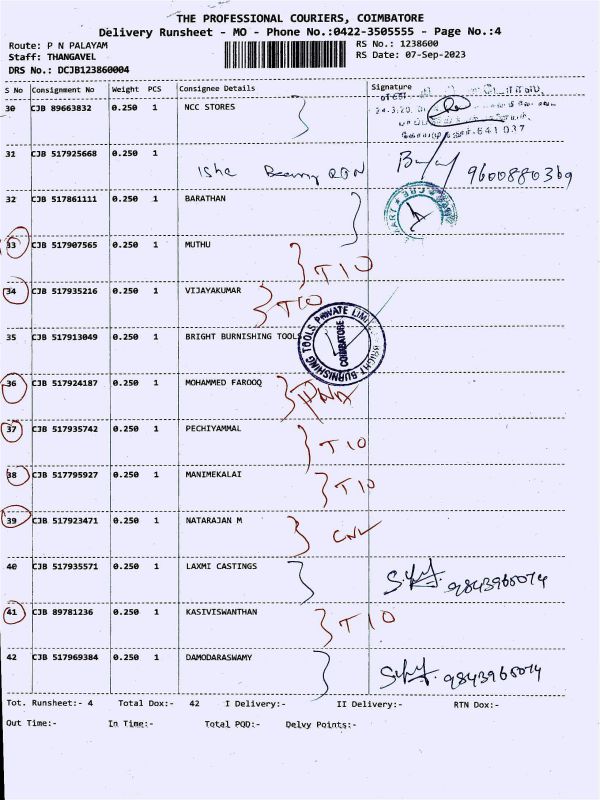 THE PROFESSIONAL COURIERS, COIMBATORE
Delivery Runsheet - MO - Phone No.:0422-3505555 - Page No.:4
Route: P N PALAYAM RS No.: 1238600
Staff: THANGAVEL RS Date: 07-Sep-2023
DRS No.: DCJB123860004
S No Consignment No Weight PCS Consignee Details Signature
30 CJB 89663832 0.250 1 NCC STORES
24-3,20, 641 037
31 CJB 517925668 0.250 1
9600880369
32 CJB 517861111 0.250 1 BARATHAN
33 CJB 517907565 0.250 1 MUTHU
T10
34 CJB 517935216 0.250 1 VIJAYAKUMAR
T10
35 CJB 517913049 0.250 1 BRIGHT BURNISHING TOOLS
BRIGHT BURNISHING TOOLS PRIVATE LIMITED COIMBATORE
36 CJB 517924187 0.250 1 MOHAMMED FAROOQ
37 CJB 517935742 0.250 1 PECHIYAMMAL
T10
38 CJB 517795927 0.250 1 MANIMEKALAI
T10
39 CJB 517923471 0.250 1 NATARAJAN M
40 CJB 517935571 0.250 1 LAXMI CASTINGS
9843965074
41 CJB 89781236 0.250 1 KASIVISWANTHAN
T10
42 CJB 517969384 0.250 1 DAMODARASWAMY
9843965074
Tot. Runsheet:- 4 Total Dox:- 42 I Delivery:- II Delivery:- RTN Dox:-
Out Time:- In Time:- Total POD:- Delvy Points:-